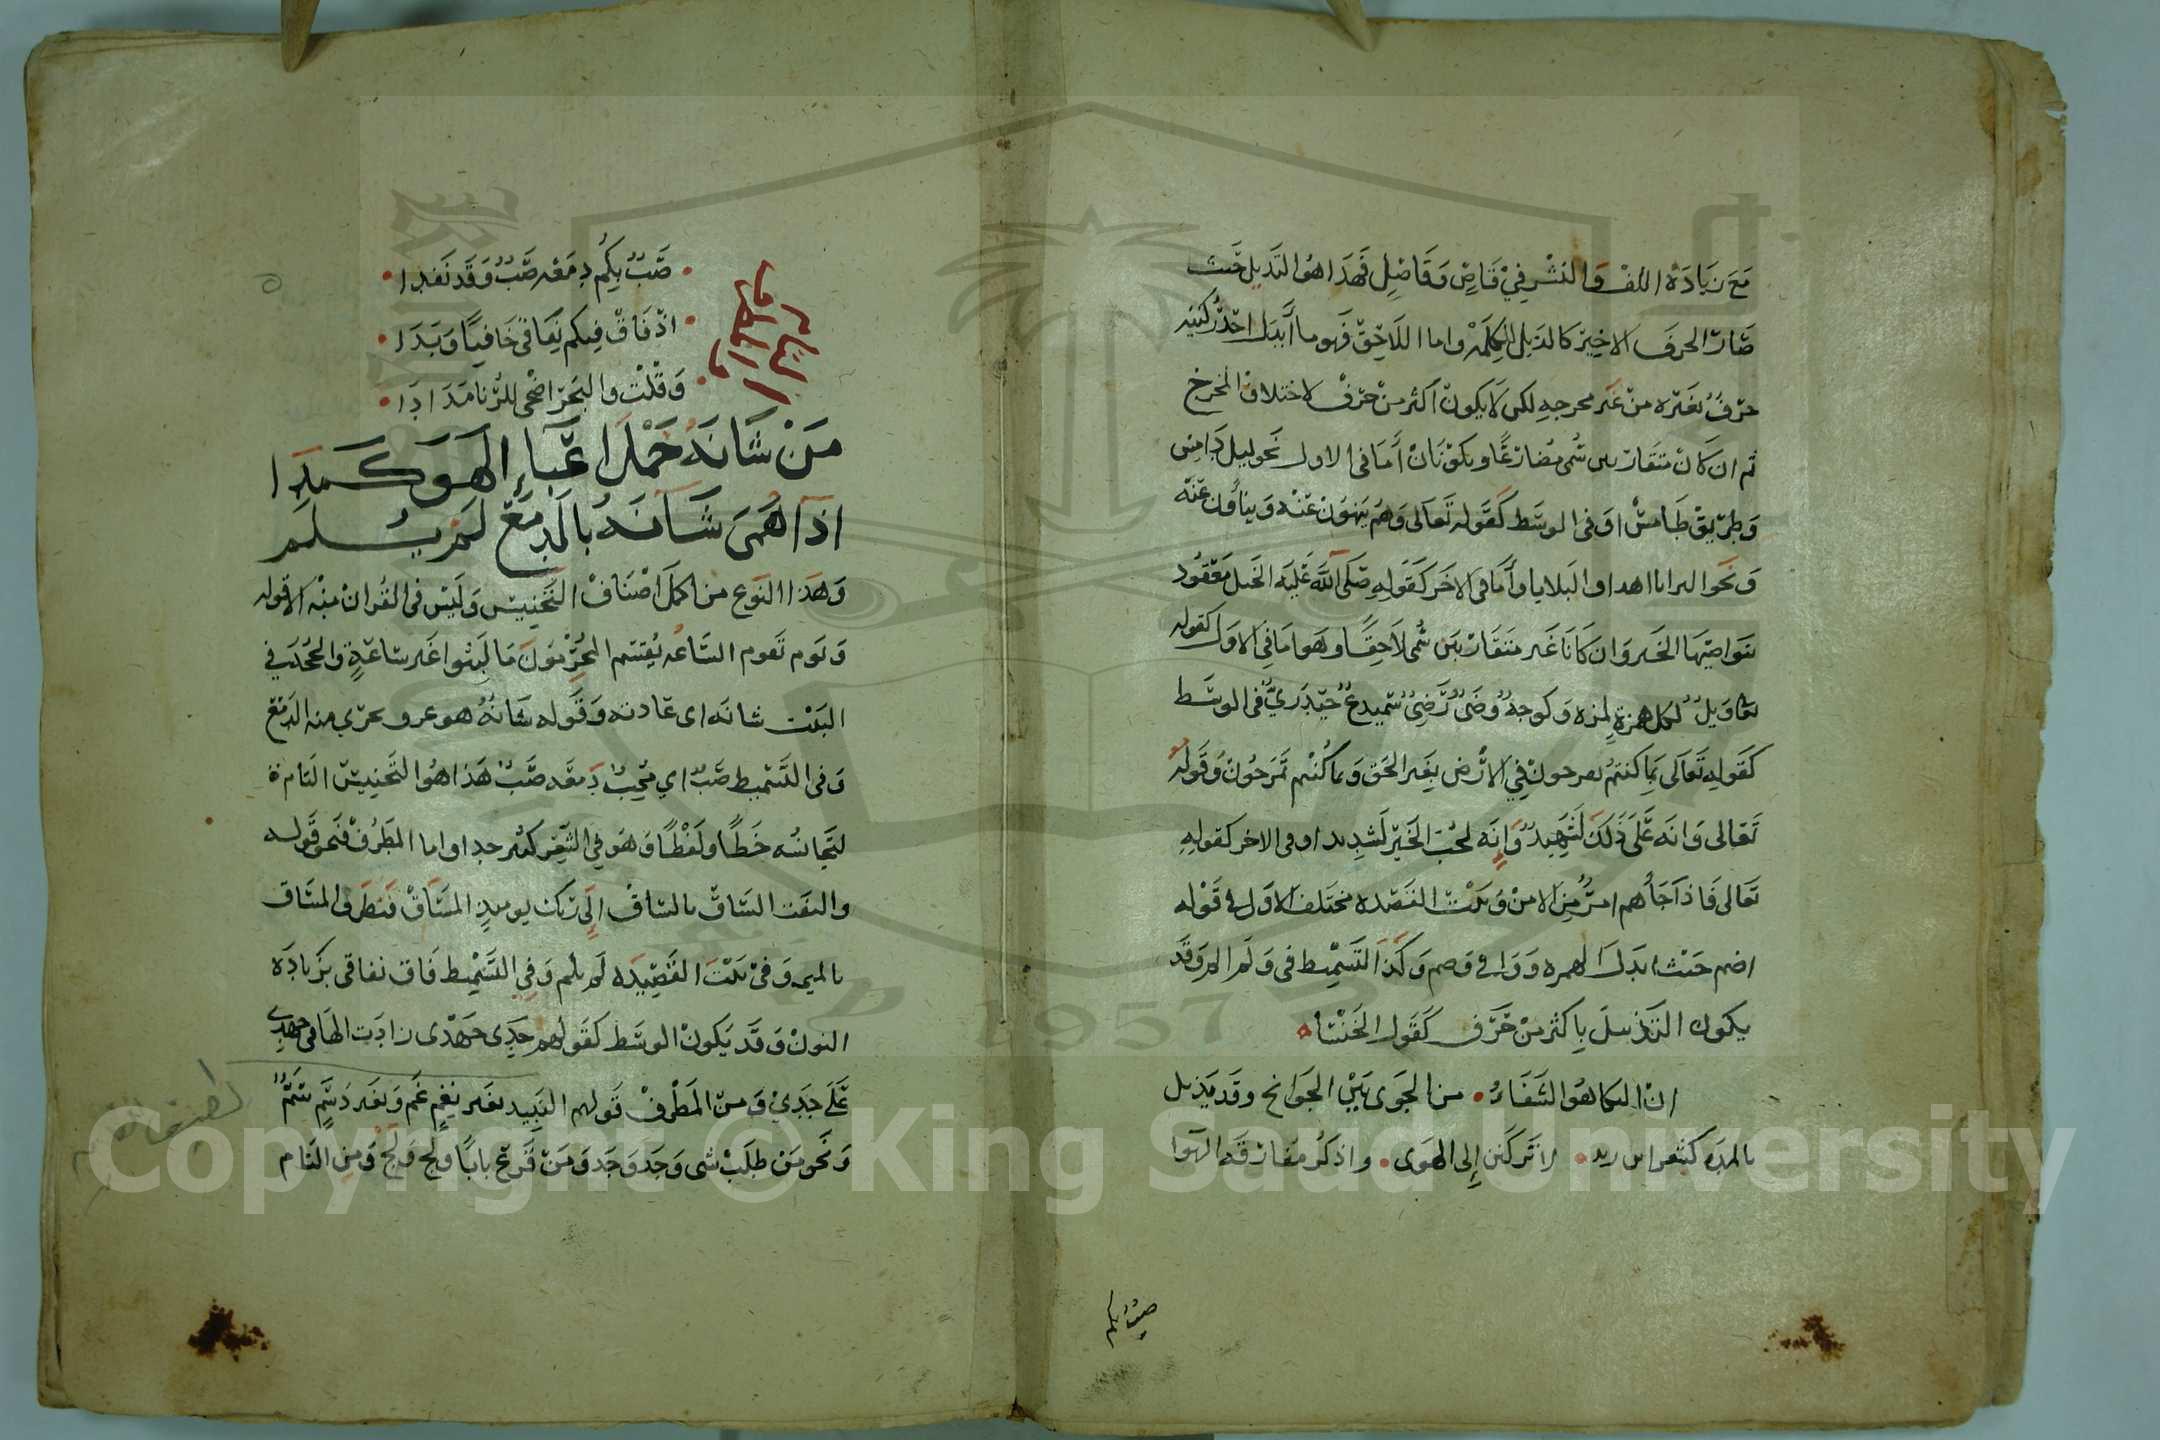 مَعَ زيَادَة اللف وَالنَشْر فيْ قَاضٍ وَفَاضِلٍ فَهَذا هُوَ التذييل حَيث
صَارَ الحَرفَ الاخِيْر كالذيل للكلمَة واما اللَاحِقْ فهو ما أبدل احَدُ ركنيه
حرْفٌ بغَيْره منْ غَير مخرجهِ لكن لَا يكونْ اكثر منْ حَرْفْ لاختلافْ المخرج
ثم ان كانْ متقاربين سُمى مُضارعًا ويكونَانْ أمَا فى الاول نحو ليل دَامِس
وَطريقْ طَامسْ اوَ فى الوسَط كقَوله تَعَالى وَهُم يَنهَوْنَ عَنْه وَيناَوْن عَنْه
وَ نحَو البرايا اهداو البَلايا وأمَا فى الاخَر كقَولِهِ صَلى اللَّهَ عَليَه الخَيل مَعْقود
بنَواصِيْهَا الخَير وَان كَانَا غَير متَقَاربَين سُمى لاحِقًا وهَو امَا فى الاول كقوله
تعَا وَيلٌ لكل همزةٍ لمزة وَكوجهٌ وُضىٌ رَّضِىٌ سَميدعٌ حَيْدَريٌ فى الوسَط
كقَولِهِ تَعَالَى بمَا كنتمُ تفرحونْ فِي الارْض بغَير الحَق وَبمَا كُنتم تمرَحُونْ وَقَولهِ
تَعَالى وَانه عَلَى ذَلكَ لَشهِيدٌ وَانه لحُبَ الخَيرْ لَشدِيد او فى الاخر كقولهِ
تَعالى فَاذا جَاُهم امرٌ مِنَ الامنْ وَبَيْتُ القَصيْده مختَلف الاوَل فى قَوْله
اضم حَيث ابدَلَ الهمزه وَ وَاو فى وَصم وَكذا التَسمِيْط فى وَلَم الم وَقد
يكون التَذييلَ باِكثر منْ حَرْف كقَول الخنْسَاء
انْ البكا هُوَ الشَفَاءُ • منَ الجَوى بَيْنَ الجَوانح وقد يُذيل
بالمدَه كشعر ابن ريد • لا تَركَنَن اِلى الهَوى • واذكرُ مفارقَه الهَوا
• صَبٌّ بِكُم دِمعَه صَبٌ وَقد نَفدِا •
• اذْ فاقْ فيكم نِفَاقي خَافيًا وَبَدَا •
• وَقُلْتْ والبَحَرْ اضْحى للرُّنا مَدَدَا •
التام والمطرف
مَنْ شَانَهُ حَمْلُ اَعْبَاءِ الهَوَى كَمَدًا
اذَا هَمَى شَانَهُ بالدِمَعْ لَمْ يُسلم
وَهَذا النَوع منَ اكملَ اصْنَافْ التَجنِيسْ وَليَسْ فى القُرانْ منْه الا قوله
وَيَوم تَقوم السَاعَه يُقسَم المُجْرِمُونَ مَا لَبِثوا غَير سَاعَةٍ والمحمَد في
البَيْت شانهَ اى عَادته وَقَوله شَانهُ هو عرو يجرْى منه الدَمْع
وَفى التَسْميط صَبٌ اي مُحِبٌ بدَمعَه صَبٌ هَذا هُوَ التجنِيسْ التَام ة
لتَجانسُه خَطًا وَلفْظًا وَهُو فِي الشَعِر كثير جدا واما المطَرفْ فنَحو قَوله
والتفَت السَاقْ بالسَاقْ اِلَى رَبكَ يومَيذٍ المسَاقْ فتطَرفَ المسَاق
بالميم وَفيْ بَيْتَ القَصِيْدَه لم يلم وَفي التَسميْط فَاق نفاقى بزَيادَة
النونْ وَقَد يَكونْ الوسَط كقَولهم جَدِّى جَهْدى زادَت الها فى جهدِى
عَلَى جَدِيْ وَ منْ المَطْرفْ قَولهم النَبيد بغَير نِغمٍ غَم وَبغَير دَسَمٍ سَمٌّ
وَنَحو مَنْ طَلبْ شى وَجَد وَجَد وَمَنْ قَرع بابًا وَلج وَلَجْ وَمِن التام